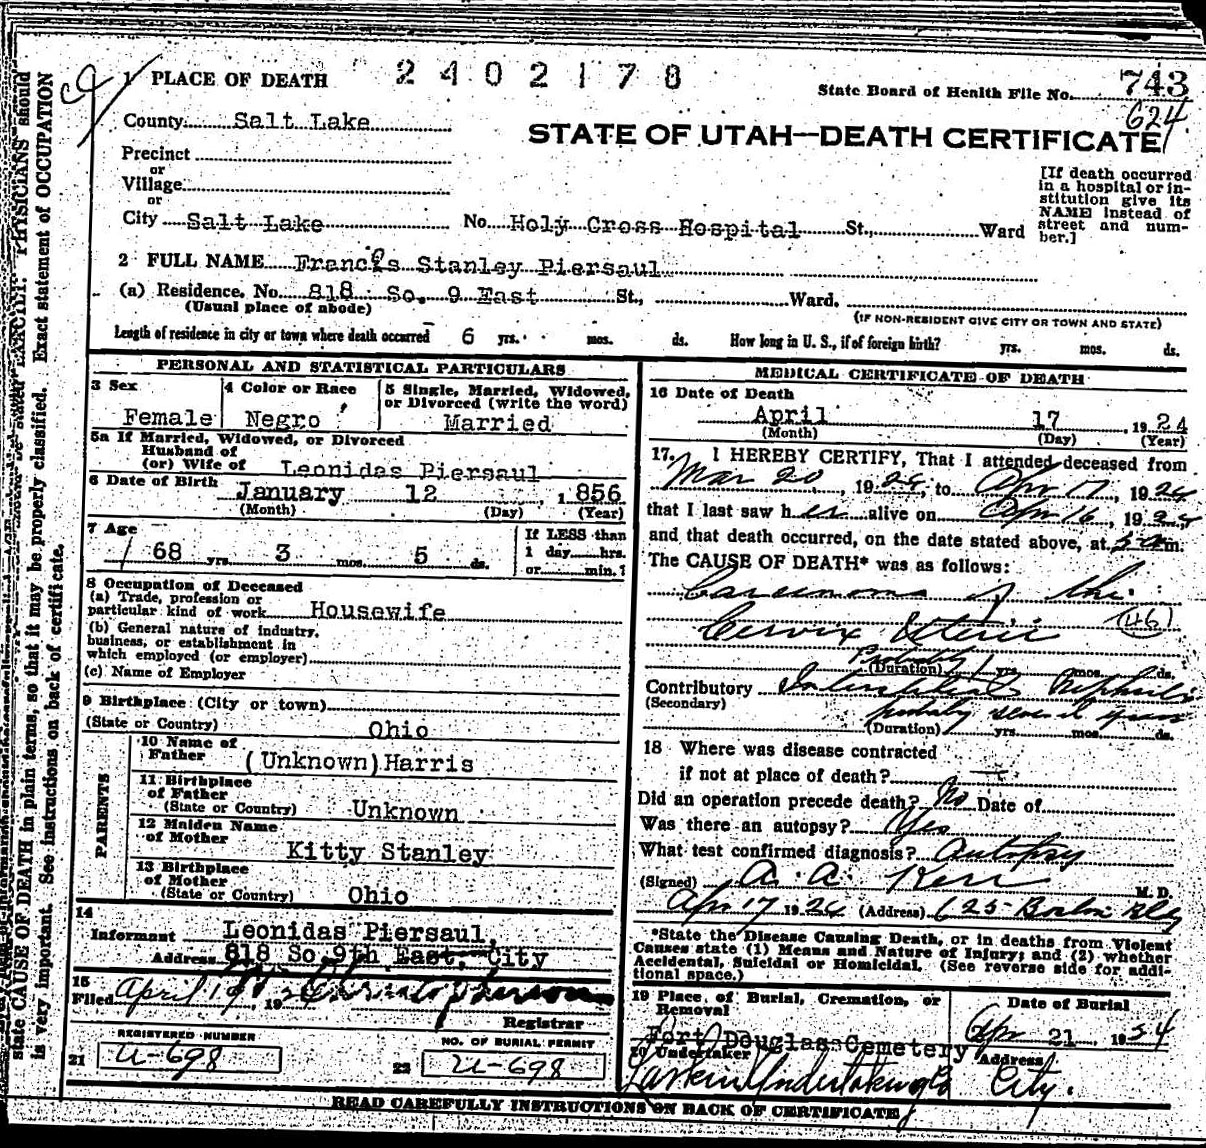 2402178
1 PLACE OF DEATH
State Board of Health File No. 743
624
County Salt Lake
STATE OF UTAH—DEATH CERTIFICATE
Precinct
or
Village
or
City Salt Lake No. Holy Cross Hospital St., Ward
[If death occurred in a hospital or institution give its NAME instead of street and number.]
2 FULL NAME Francis Stanley Piersaul
(a) Residence, No. 818 So. 9 East St., Ward.
(Usual place of abode) (IF NON-RESIDENT GIVE CITY OR TOWN AND STATE)
Length of residence in city or town where death occurred 6 yrs. mos. ds. How long in U. S., if of foreign birth? yrs. mos. ds.
PERSONAL AND STATISTICAL PARTICULARS
3 Sex Female
4 Color or Race Negro
5 Single, Married, Widowed, or Divorced (write the word) Married
5a If Married, Widowed, or Divorced
Husband of
(or) Wife of Leonidas Piersaul
6 Date of Birth January 12, 1856
(Month) (Day) (Year)
7 Age 68 yrs. 3 mos. 5 ds.
If LESS than
1 day hrs.
or min.?
8 Occupation of Deceased
(a) Trade, profession or
particular kind of work Housewife
(b) General nature of industry,
business, or establishment in
which employed (or employer)
(c) Name of Employer
9 Birthplace (City or town)
(State or Country) Ohio
PARENTS
10 Name of
Father (Unknown) Harris
11 Birthplace
of Father
(State or Country) Unknown
12 Maiden Name
of Mother Kitty Stanley
13 Birthplace
of Mother
(State or Country) Ohio
14
Informant Leonidas Piersaul
Address 818 So. 9th East, City
15
Filed April 19
Registrar
REGISTERED NUMBER
21 U-698
NO. OF BURIAL PERMIT
22 U-698
MEDICAL CERTIFICATE OF DEATH
16 Date of Death
April 17, 1924
(Month) (Day) (Year)
17. I HEREBY CERTIFY, That I attended deceased from
Mar 20, 1924, to Apr 17, 1924
that I last saw her alive on Apr 16, 1924
and that death occurred, on the date stated above, at 5 a m.
The CAUSE OF DEATH* was as follows:
Carcinoma of the
Cervix Uterii (46)
Probably 1
(Duration) yrs. mos. ds.
Contributory Interstitial Nephritis
(Secondary) probably several years
(Duration) yrs. mos. ds.
18 Where was disease contracted
if not at place of death?
Did an operation precede death? No Date of
Was there an autopsy? Yes
What test confirmed diagnosis? Autopsy
(Signed) A. A. Kerr M. D.
Apr 17 1924 (Address) 625 Boston Bldg
*State the Disease Causing Death, or in deaths from Violent
Causes state (1) Means and Nature of Injury; and (2) whether
Accidental, Suicidal or Homicidal. (See reverse side for addi-
tional space.)
19 Place of Burial, Cremation, or
Removal
Fort Douglas Cemetery
Date of Burial
Apr 21, 1924
20 Undertaker
Larkin Undertaking Co
Address
City.
READ CAREFULLY INSTRUCTIONS ON BACK OF CERTIFICATE
PHYSICIANS should
state CAUSE OF DEATH in plain terms, so that it may be properly classified. Exact statement of OCCUPATION
is very important. See instructions on back of certificate.